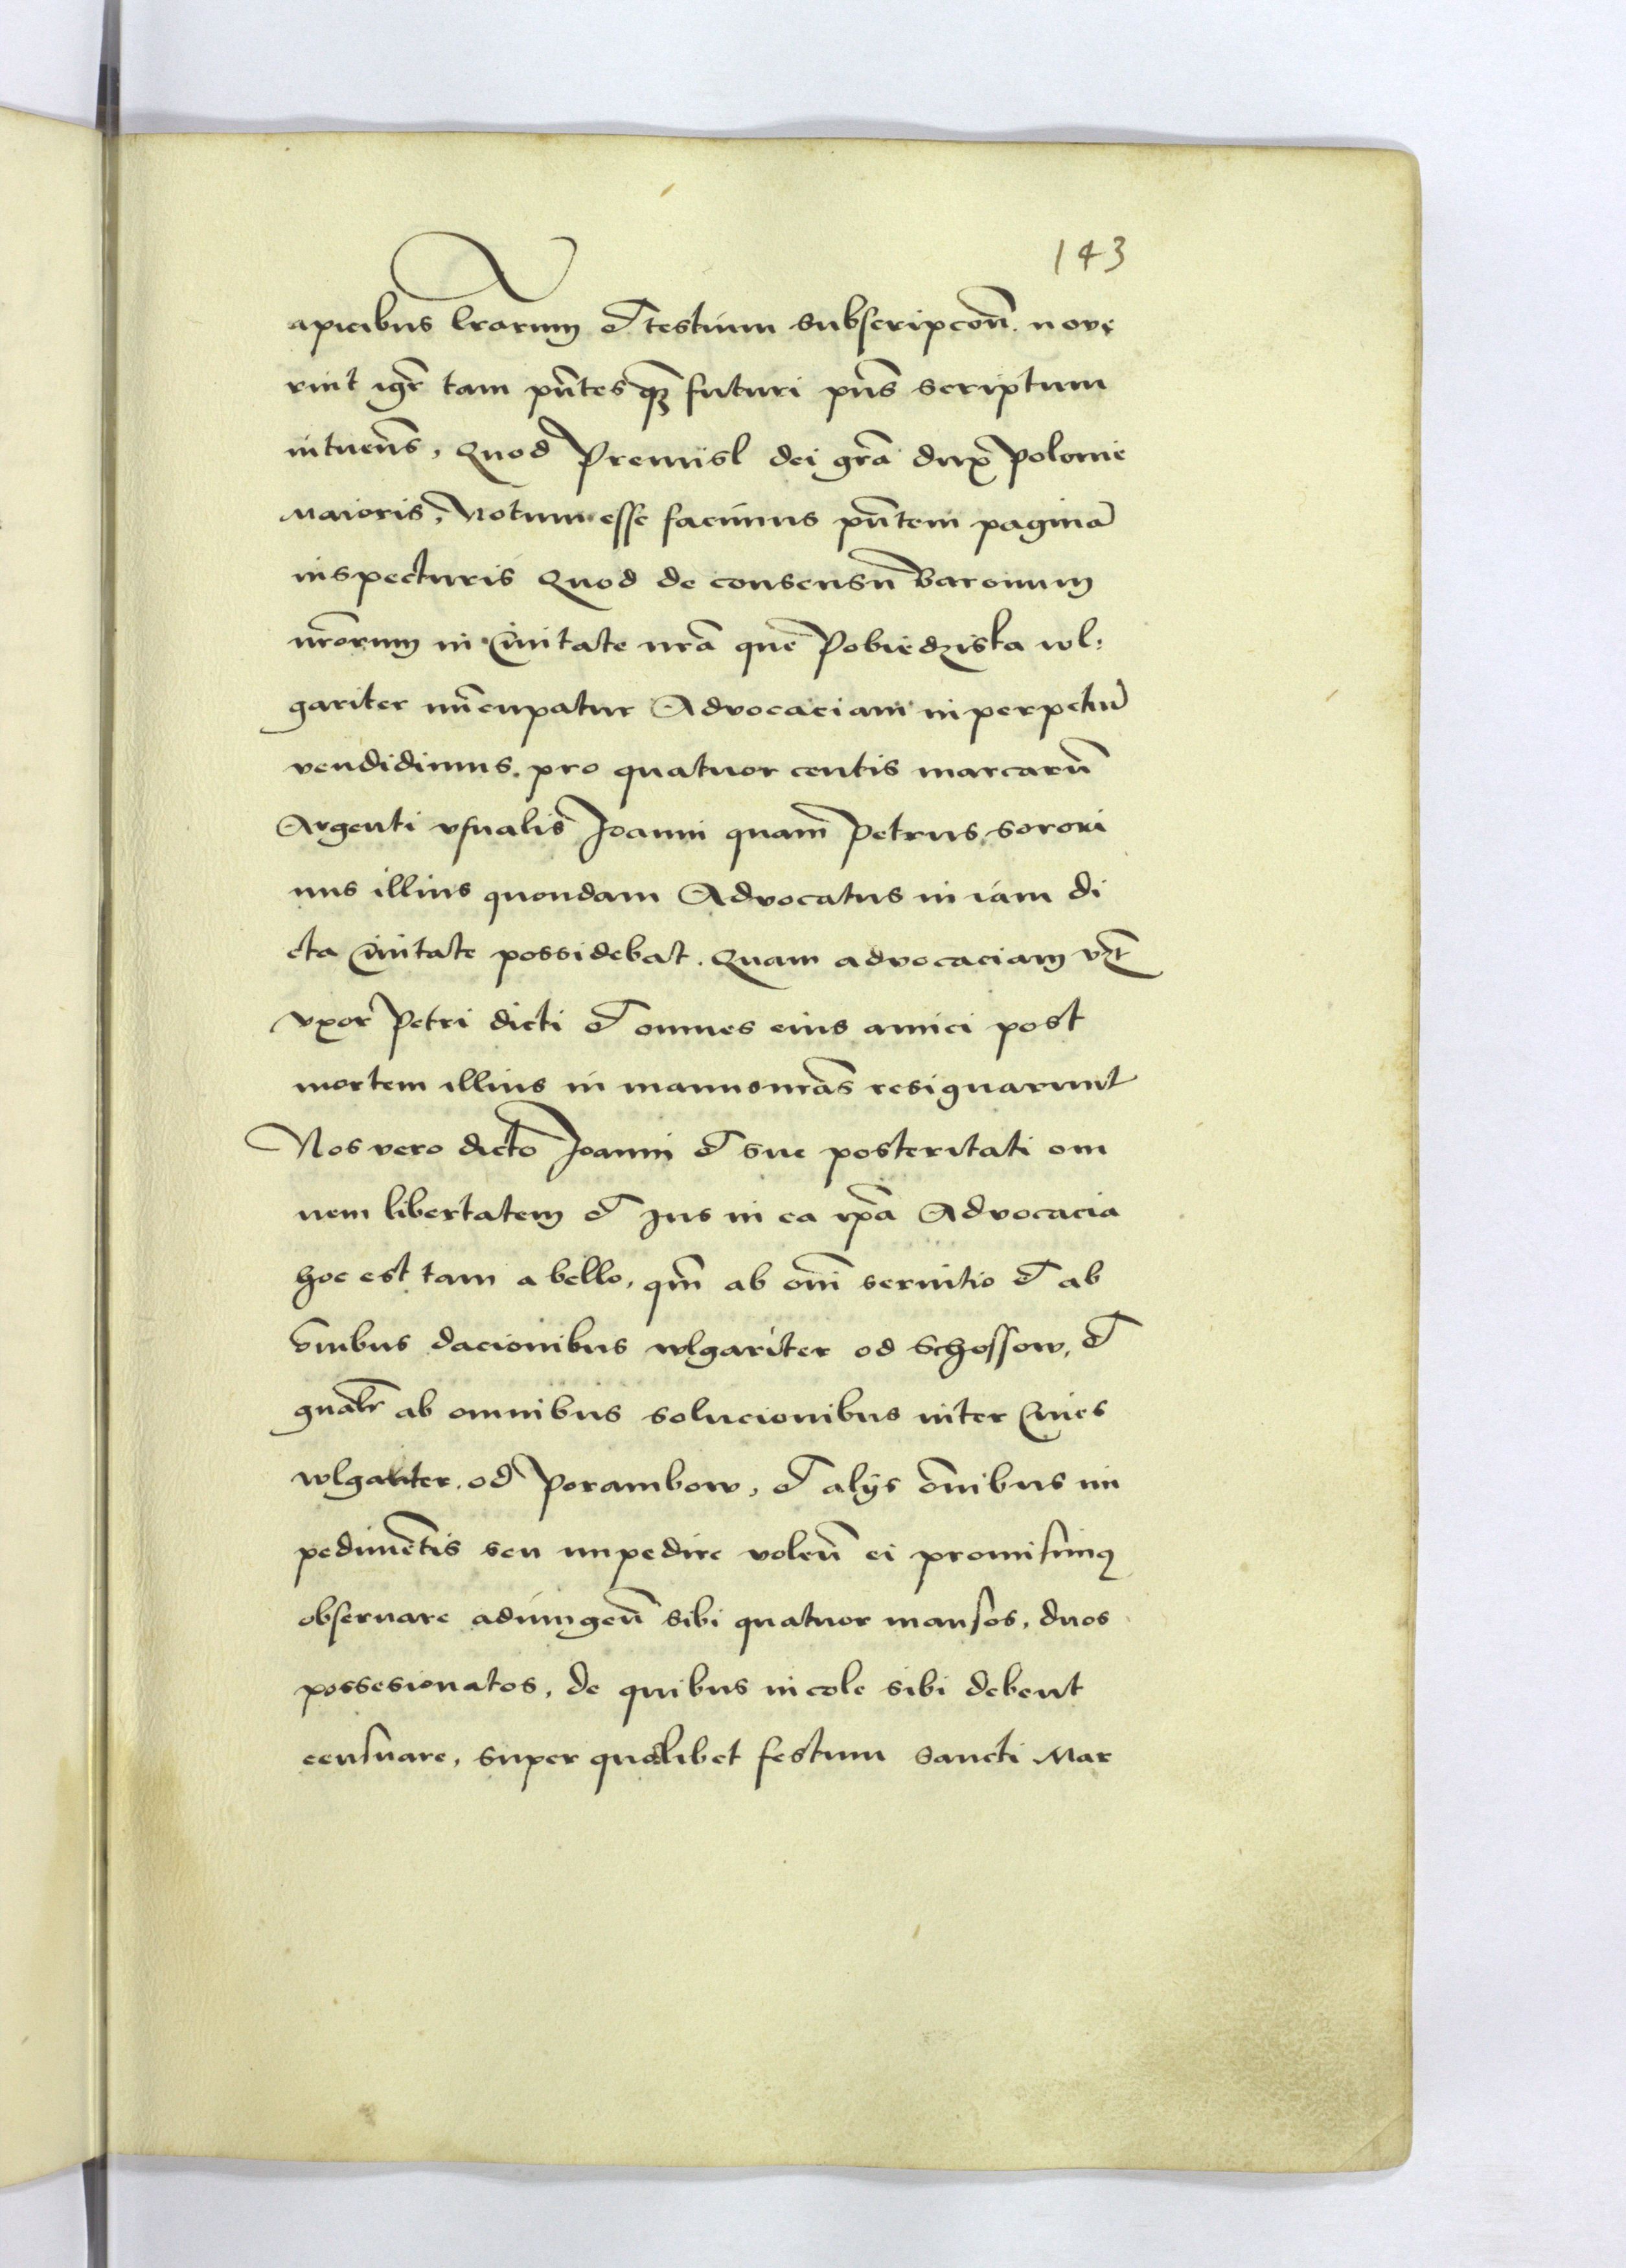 143
apicibus lrarum et testium subscripcon̄. nove
rint igr̄ tam pn̄tes qȝ futuri pn̄s scriptum
intuen̄s, Quod Premisl dei grā dux Polonie
Maioris, Notum esse facimus pn̄tem paginā
inspecturis Quod de consensu Baronum
nr̄orum in Civitate nrā que Pobiedziska wl:
gariter nūcupatur Advocaciam in perpetuū
vendidimus. pro quatuor centis marcarū
Argenti usualis Joanni quam Petrus sorori
nus illius quondam Advocatus in iam di
cta Civitate possidebat. Quam advocaciam vꝫ
vxor Petri dicti et omnes eius amici post
mortem illius in manus nrās resignarunt
Nos vero dicto Joanni et sue posteritati om
nem libertatem et Jus in ea ip̄a Advocacia
hoc est tam a bello, qm̄ ab om̄i servitio et ab
om̄ibus dacionibus wlgariter od Schossow, et
gn̄alr̄ ab omnibus solucionibus inter Cives
wlgariter od Porambow, et alijs om̄ibus im
pedimētis seu impedire volen̄ ei promisimꝰ
observare adiungen̄ sibi quatuor mansos, duos
possesionatos, de quibus incole sibi debent
censuare, super quodlibet festum Sancti Mar